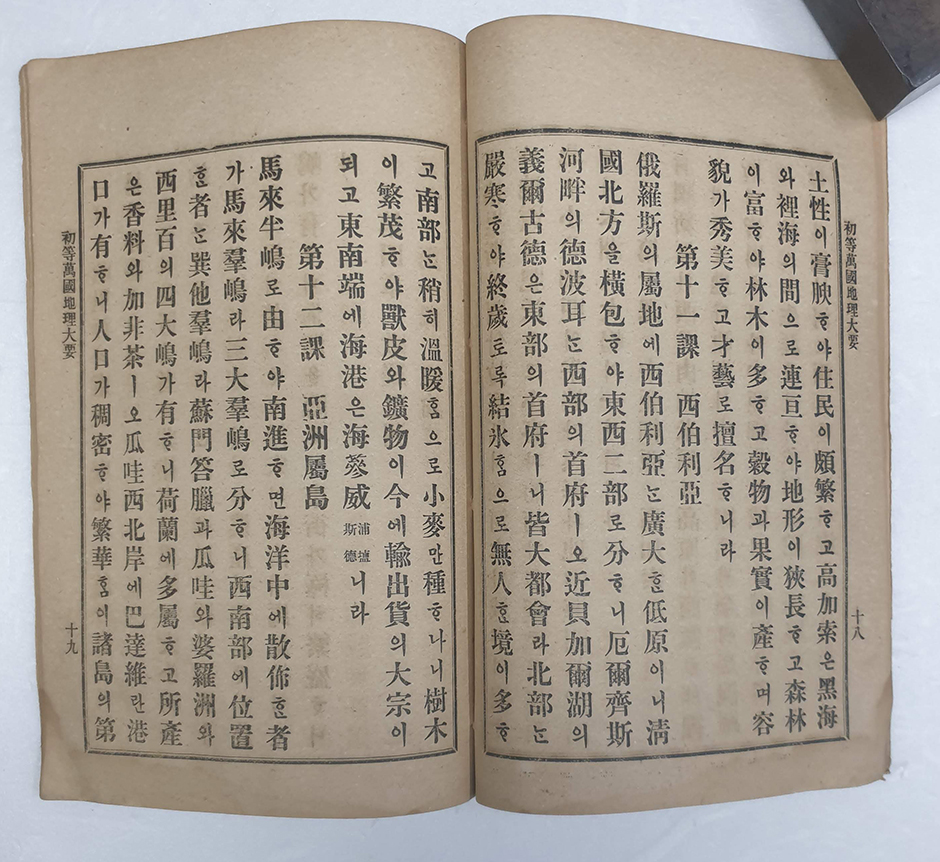 初等萬國地理大要
十八
土性이膏腴ᄒᆞ야住民이頗繁ᄒᆞ고高加索은黑海
와裡海의間으로連亘ᄒᆞ야地形이狹長ᄒᆞ고森林
이富ᄒᆞ야林木이多ᄒᆞ고穀物과果實이產ᄒᆞ며容
貌가秀美ᄒᆞ고才藝로擅名ᄒᆞ니라
第十一課 西伯利亞
俄羅斯의屬地에西伯利亞ᄂᆞᆫ廣大ᄒᆞᆫ低原이니淸
國北方을橫包ᄒᆞ야東西二部로分ᄒᆞ니厄爾齊斯
河畔의德波耳ᄂᆞᆫ西部의首府ㅣ오近貝加爾湖의
義爾古德은東部의首府ㅣ니皆大都會라北部ᄂᆞᆫ
嚴寒ᄒᆞ야終歲토록結氷ᄒᆞᆷ으로無人ᄒᆞᆫ境이多ᄒᆞ
고南部ᄂᆞᆫ稍히溫暖ᄒᆞᆷ으로小麥만種ᄒᆞ나니樹木
이繁茂ᄒᆞ야獸皮와鑛物이今에輸出貨의大宗이
되고東南端에海港은海蔘威浦鹽斯德니라
第十二課 亞洲屬島
馬來半嶋로由ᄒᆞ야南進ᄒᆞ면海洋中에散佈ᄒᆞᆫ者
가馬來羣嶋라三大羣嶋로分ᄒᆞ니西南部에位置
ᄒᆞᆫ者ᄂᆞᆫ巽他羣嶋라蘇門答臘과瓜哇와婆羅洲와
西里百의四大嶋가有ᄒᆞ니荷蘭에多屬ᄒᆞ고所產
은香料와加非茶ㅣ오瓜哇西北岸에巴達維란港
口가有ᄒᆞ니人口가稠密ᄒᆞ야繁華ᄒᆞᆷ이諸島의第
初等萬國地理大要
十九